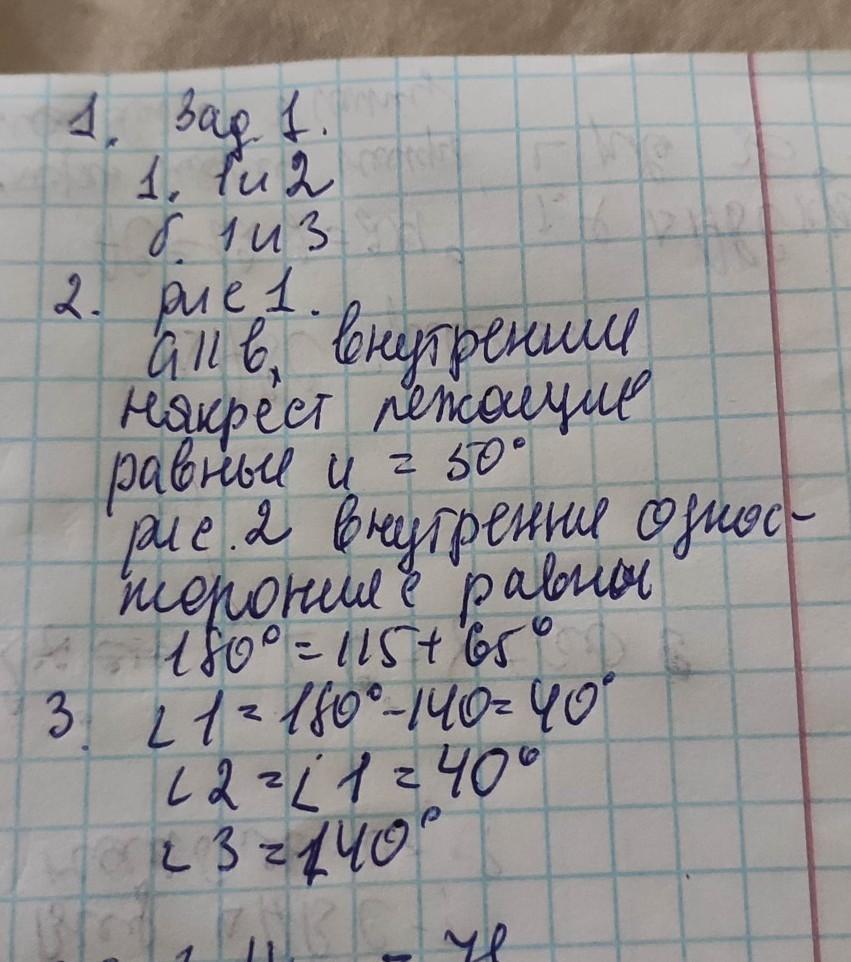 1. Зад 1.
1. 1 и 2
б. 1 и 3
2. рис 1.
a || b, внутренние
накрест лежащие
равные и = 50°
рис. 2 внутренние однос-
торонние равны
180° = 115 + 65°
3. ∠1 = 180° - 140 = 40°
∠2 = ∠1 = 40°
∠3 = 140°